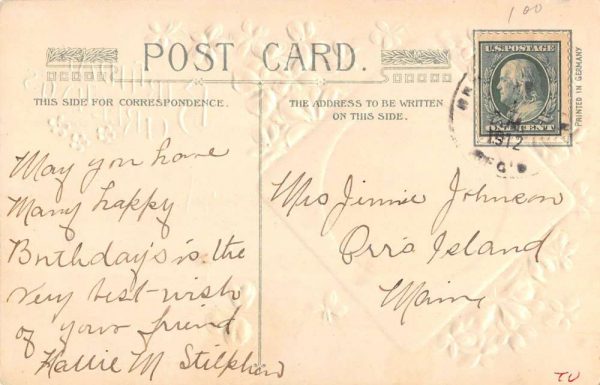 1 00
POST CARD.
U.S. POSTAGE
ONE CENT
PRINTED IN GERMANY
THIS SIDE FOR CORRESPONDENCE.
THE ADDRESS TO BE WRITTEN
ON THIS SIDE.
1912
REC'D
May you have
Many happy
Birthdays is the
very best wish
of your friend
Hallie M Stilphen
Mrs Jinnie Johnson
Orrs Island
Maine
TU